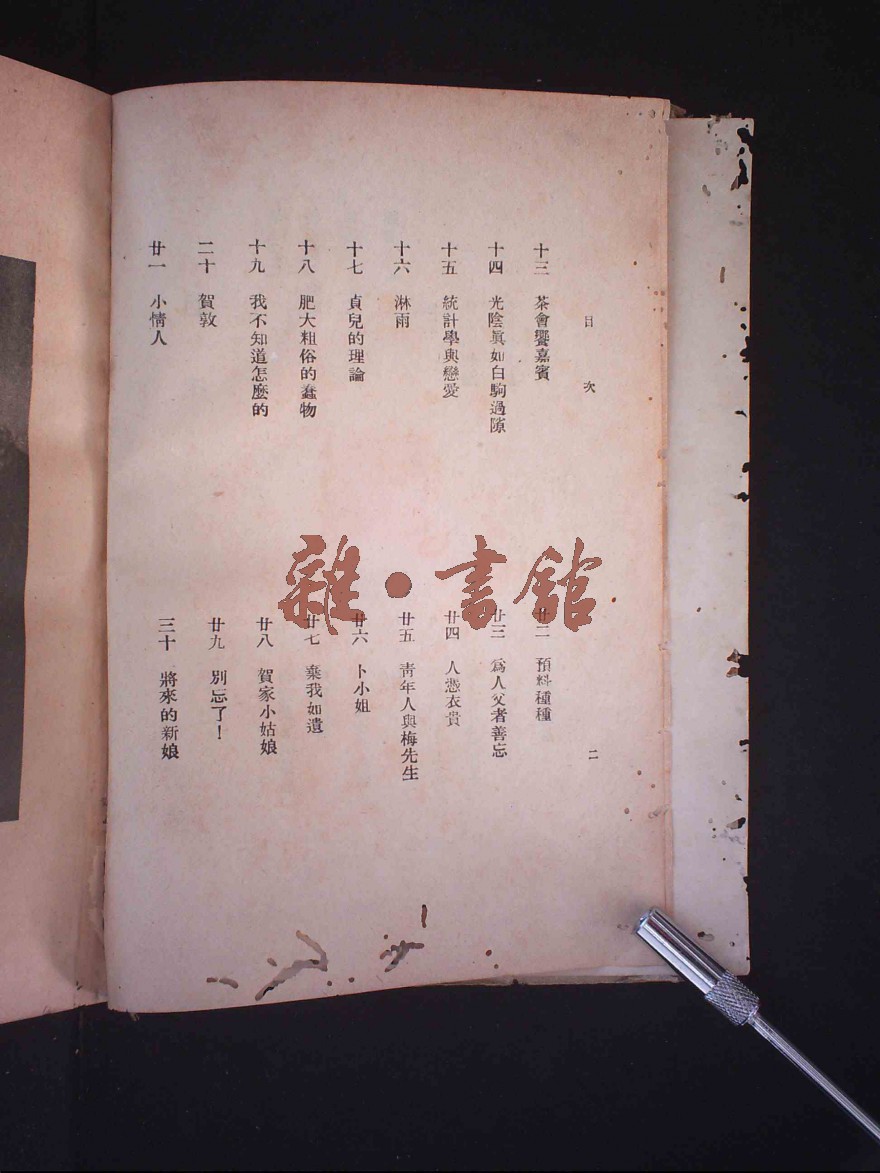 目次
十三 茶會饗嘉賓
十四 光陰眞如白駒過隙
十五 統計學與戀愛
十六 淋雨
十七 貞兒的理論
十八 肥大粗俗的蠢物
十九 我不知道怎麼的
二十 賀敦
廿一 小情人
廿二 預料種種
廿三 爲人父者善忘
廿四 人憑衣貴
廿五 靑年人與梅先生
廿六 卜小姐
廿七 棄我如遺
廿八 賀家小姑娘
廿九 別忘了！
三十 將來的新娘
二
雜·書館